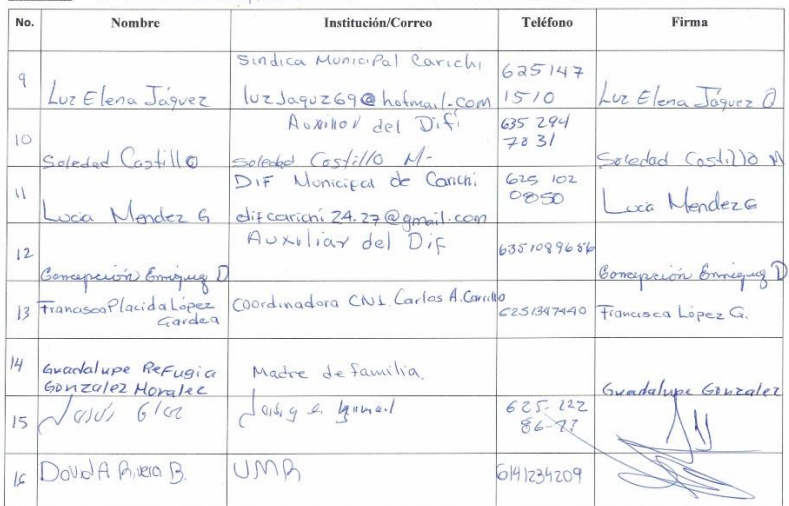 No. Nombre Institución/Correo Teléfono Firma
9 Luz Elena Jáquez Sindica Municipal Carichi luzjaquz69@hotmail.com 625 147 1510 Luz Elena Jáquez O
10 Soledad Castillo Auxiliar del Dif soledad Castillo M- 635 294 7831 Soledad Castillo M
11 Lucia Mendez G DIF Municipal de Carichi difcarichi24.27@gmail.com 625 102 0850 Lucia Mendez G
12 Concepción Enriquez D Auxiliar del Dif 6351089656 Concepción Enriquez D
13 Francisca Placida López Gardea Coordinadora CNI. Carlos A. Carrillo 6251347440 Francisca López G.
14 Guadalupe Refugia Gonzalez Morales Madre de familia. Guadalupe Gonzalez
15 625-122
16 David A Rivera B. UMR 6141234209